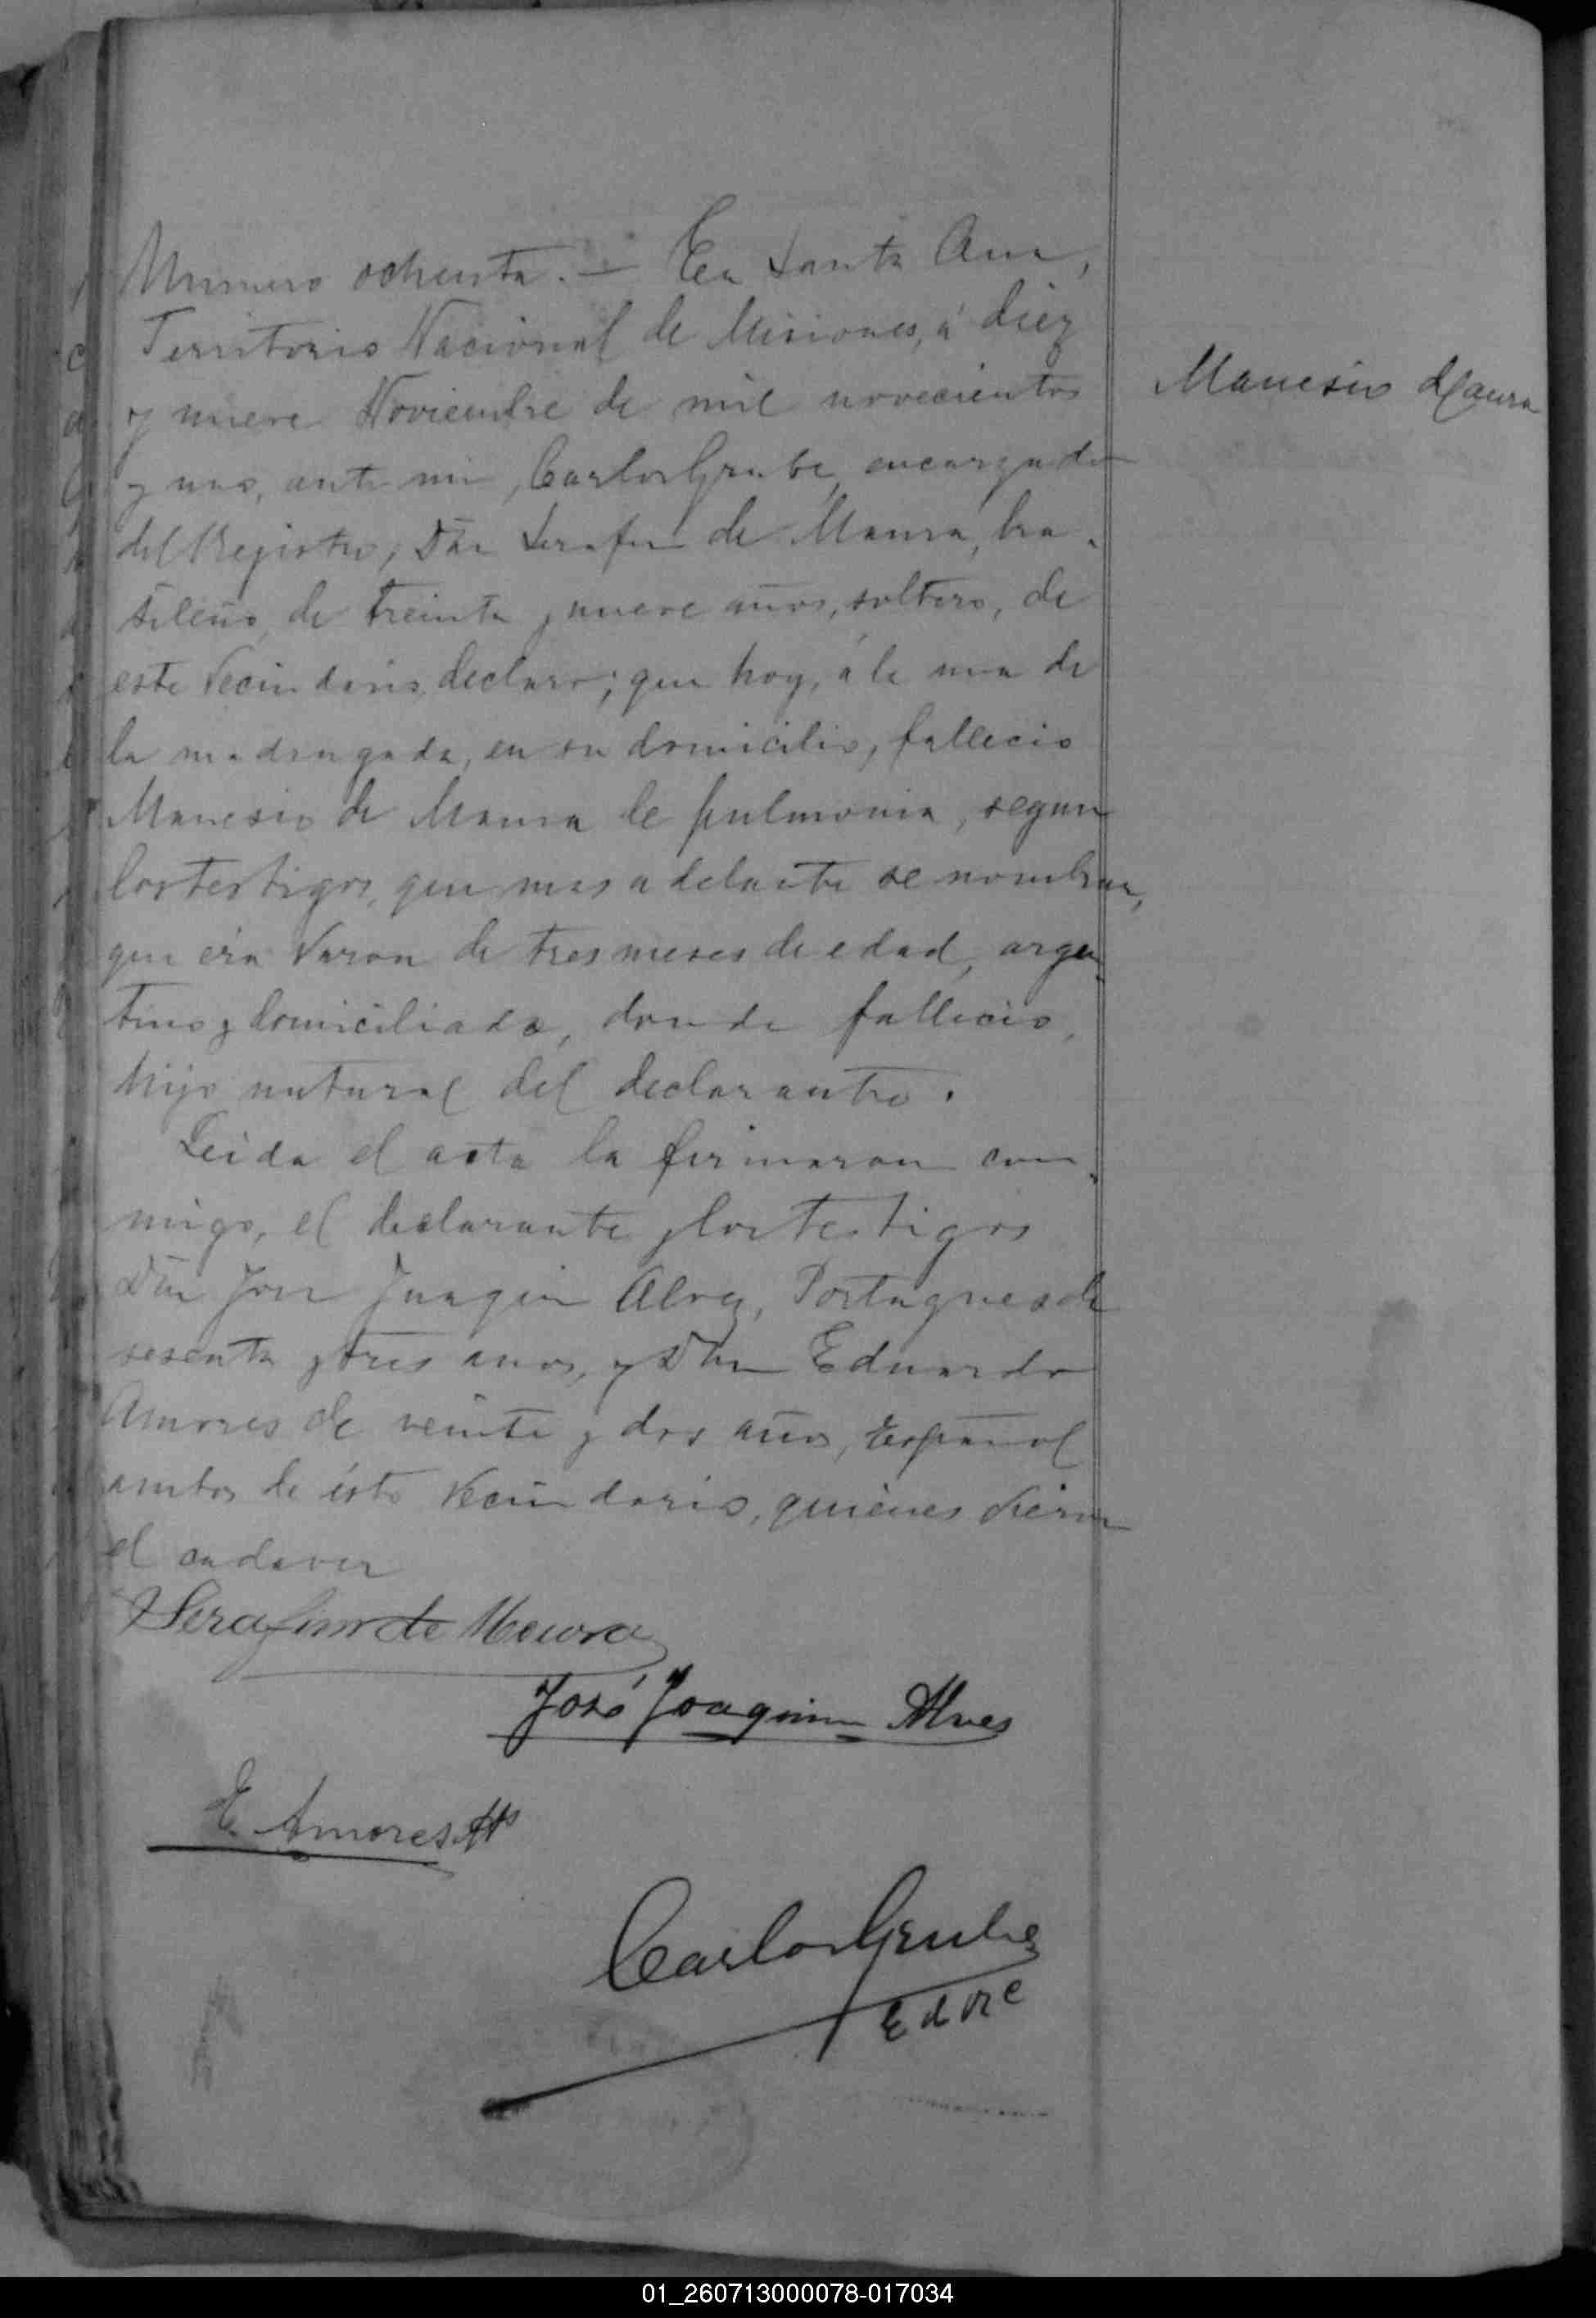 Numero ochenta. — En Santa Ana,
Territorio Nacional de Misiones, á diez
y nueve Noviembre de mil novecientos
y uno, ante mi, Carlos Grube, encargado
del Registro, Dn Serafin de Maura, bra-
sileño, de treinta y nueve años, soltero, de
este Vecindario, declaro; que hoy, á la una de
la madrugada, en su domicilio, fallecio
Manesio de Maura de pulmonia, segun
los testigos, que mas adelante se nombran,
que era Varon de tres meses de edad, argen-
tino y domiciliado, donde fallecio,
hijo natural del declarante.
Leida el acta la firmaron con-
migo, el declarante y los testigos
Dn Jose Juaquin Alves, Portugues de
sesenta y tres años, y Dn Eduardo
Amores de veinte y dos años, Español
ambos de éste Vecindario, quiénes vieron
el cadaver
Manesio Maura
Serafim de Moura
José Joaquim Alves
E. Amores
Carlos Grube
E d R C
01_260713000078-017034